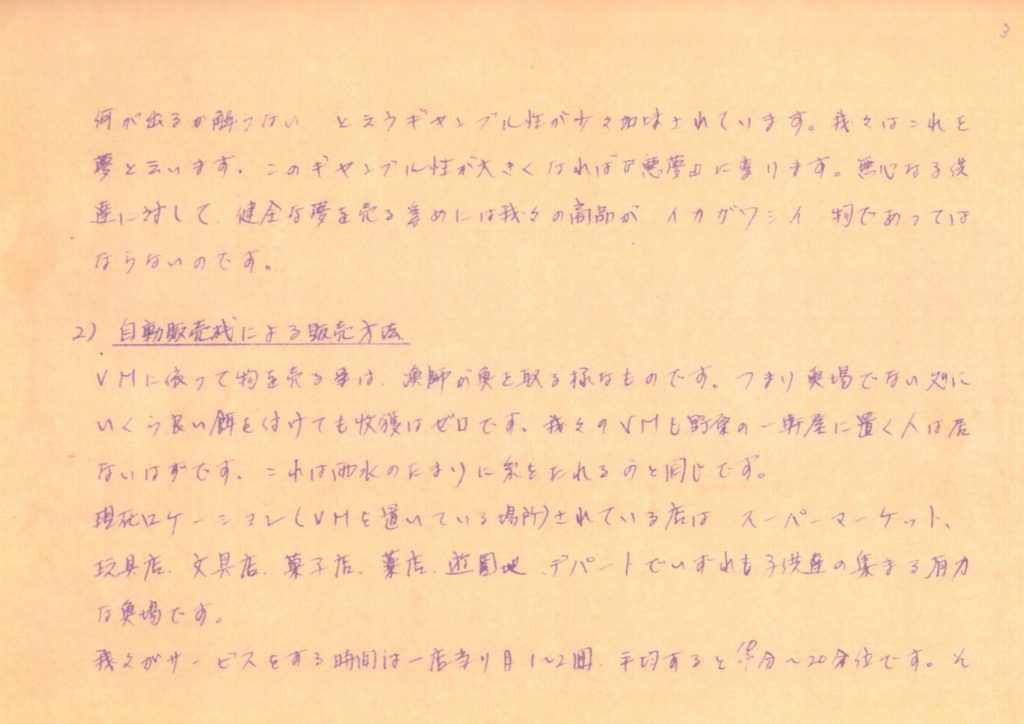 3
何が出るか解らない という ギャンブル性が少々加味されています。我々はこれを
夢と云います。このギャンブル性が大きくなれば『悪夢』に変ります。無心なる子供
達に対して、健全な夢を売る為めには我々の商品が イカガワシイ 物であっては
ならないのです。
2) 自動販売機による販売方法
VMに依って物を売る事は、漁師が魚を取る様なものです。つまり魚場でない処に
いくら良い餌を付けても収獲はゼロです。我々のVMも野原の一軒屋に置く人は居
ないはずです。これは雨水のたまりに糸をたれるのと同じです。
現在ロケーション(VMを置いている場所)されている店は スーパーマーケット、
玩具店、文具店、菓子店、薬店、遊園地、デパートでいずれも子供達の集まる有力
な魚場です。
我々がサービスをする時間は一店当り月1~2回、平均すると10分~20分位です。そ